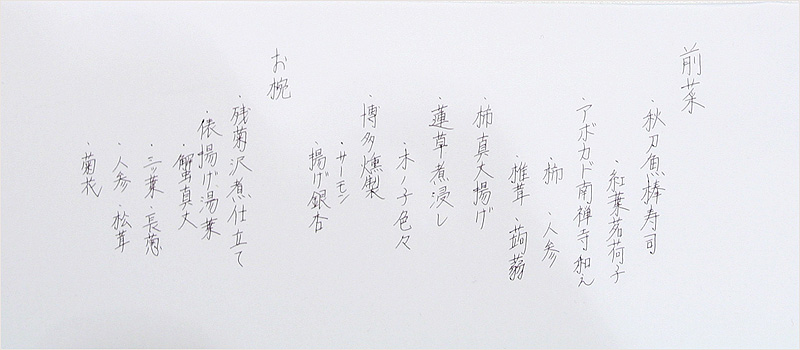 前菜
・秋刀魚棒寿司
・紅葉茗荷子
・アボカド南禅寺和え
・柿 ・人参
・椎茸 ・蒟蒻
・柿真丈揚げ
・蓮草煮浸し
・木ノ子色々
・博多燻製
・サーモン
・揚げ銀杏
お椀
・残菊沢煮仕立て
・俵揚げ湯葉
・蟹真丈
・三ッ葉・長葱
・人参・松茸
・菊花